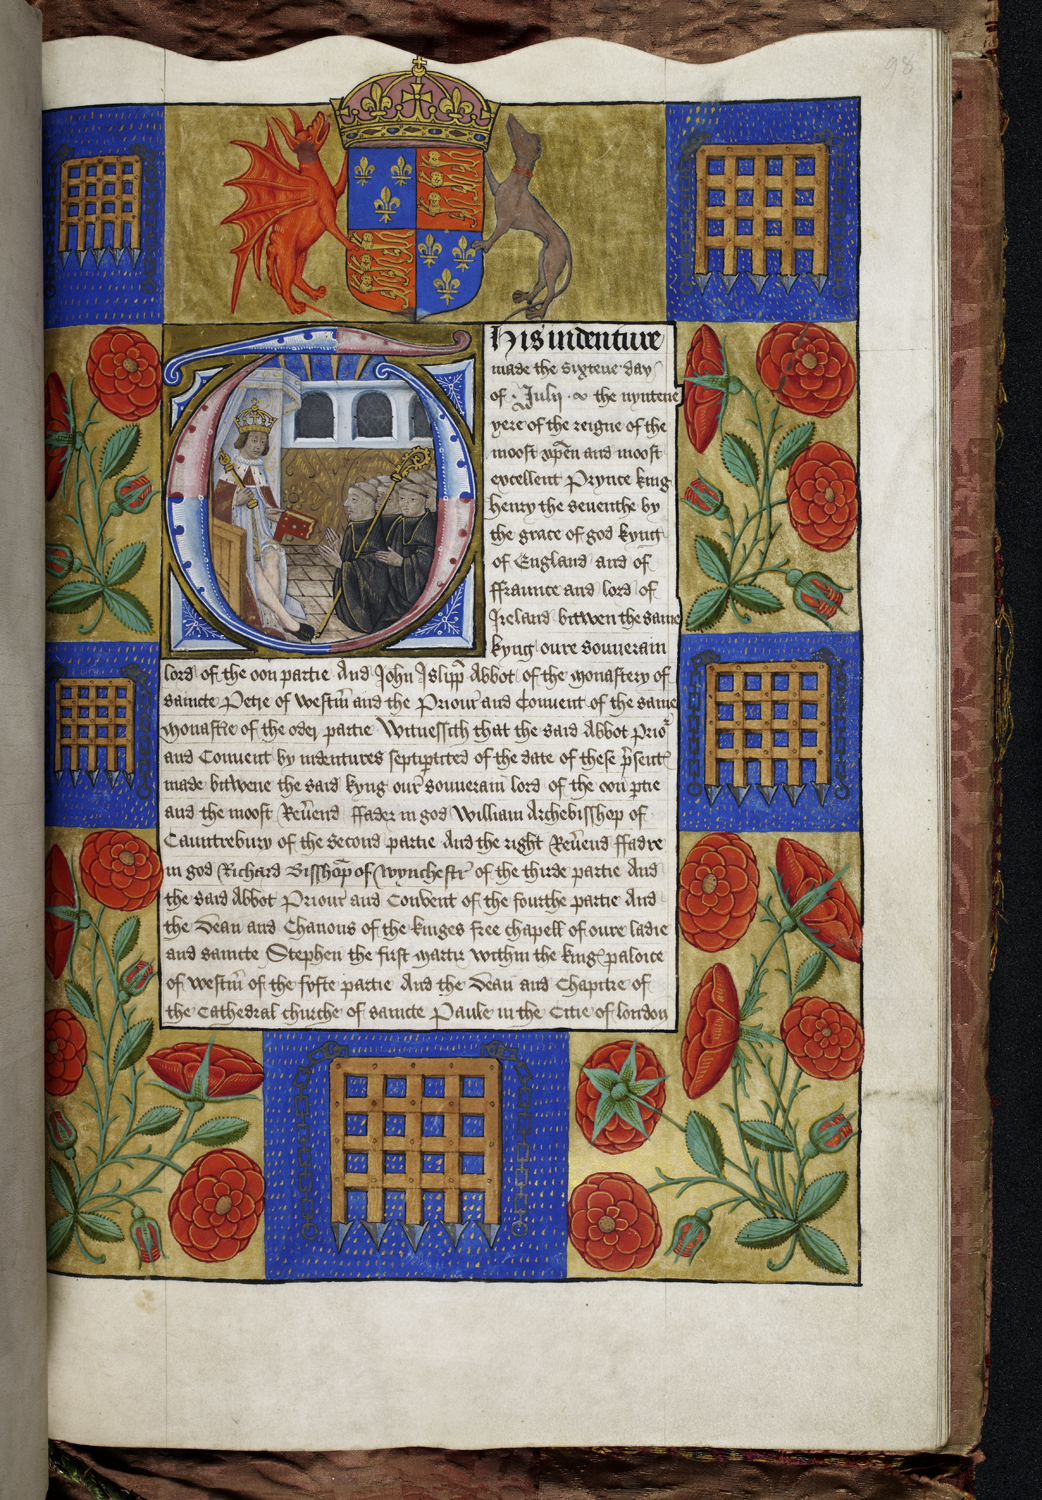 98
This indenture
made the sixtene day
of Julij the nyntene
yere of the reigne of the
moost xp̄en and moost
excellent Prynce kyng
henry the seuenthe by
the grace of god kyng
of England and of
ffraunce and lord of
Ireland bitwen the same
kyng oure souuerain
lord of the oon partie And John Islipp̄ Abbot of the monastery of
saincte Petre of Westm̄ and the Priour and Conuent of the same
monastie of the oder partie Witnessith that the said Abbot Prior
and Conuent by indentures septiptited of the date of these p̄sentes
made bitwene the said kyng our souuerain lord of the oon ptie
and the moost Reūend ffader in god William Archebisshop of
Cauntrebury of the second partie And the right Reūend ffadre
in god Richard Bisshop̄ of Wynchestr of the thirde partie And
the said Abbot Priour and Conuent of the fourthe partie And
the Dean and Chanons of the kinges free chapell of oure ladie
and saincte Stephen the furst martir within the kinges paloice
of Westm̄ of the fyfte partie And the Dean and Chapitre of
the Cathedral churche of saincte Paule in the Citie of london